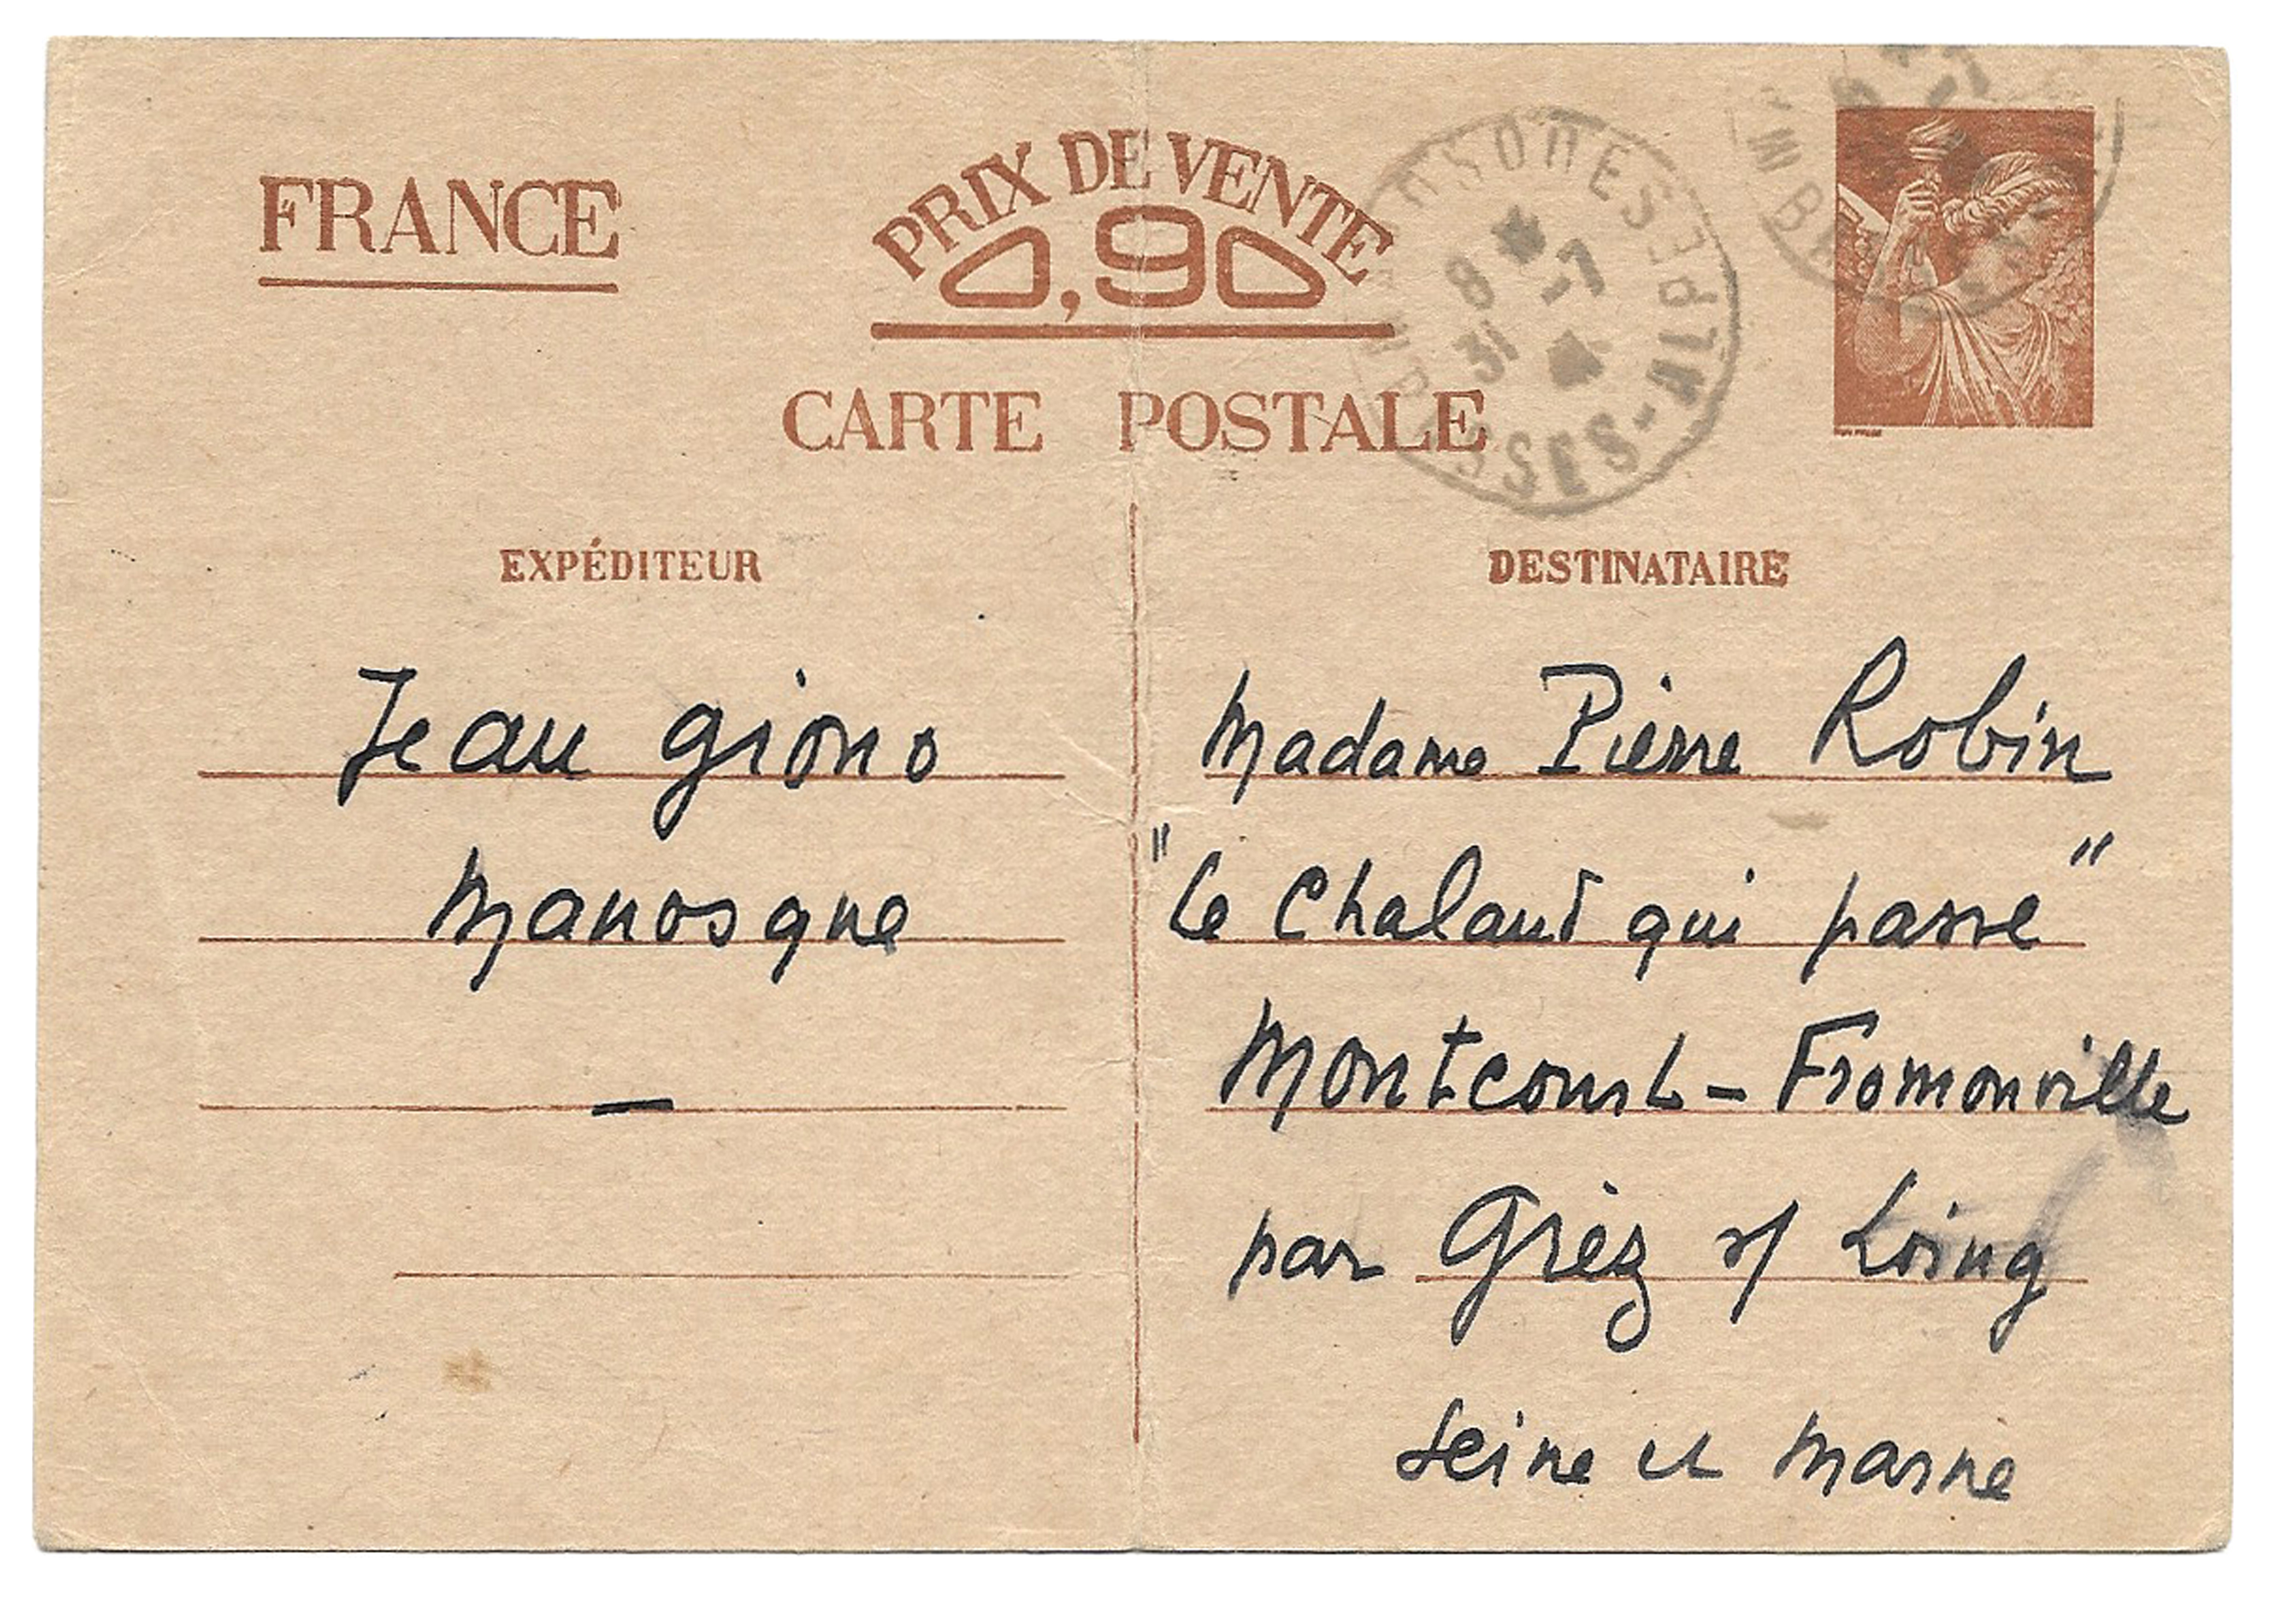 FRANCE
PRIX DE VENTE
0,90
CARTE POSTALE
8 * -7
31
SSES-ALPES
EXPÉDITEUR
DESTINATAIRE
Jean Giono
Manosque
—
Madame Pierre Robin
"Le Chaland qui passe"
Montcourt - Fromonville
par Grèz s/ Loing
Seine et Marne